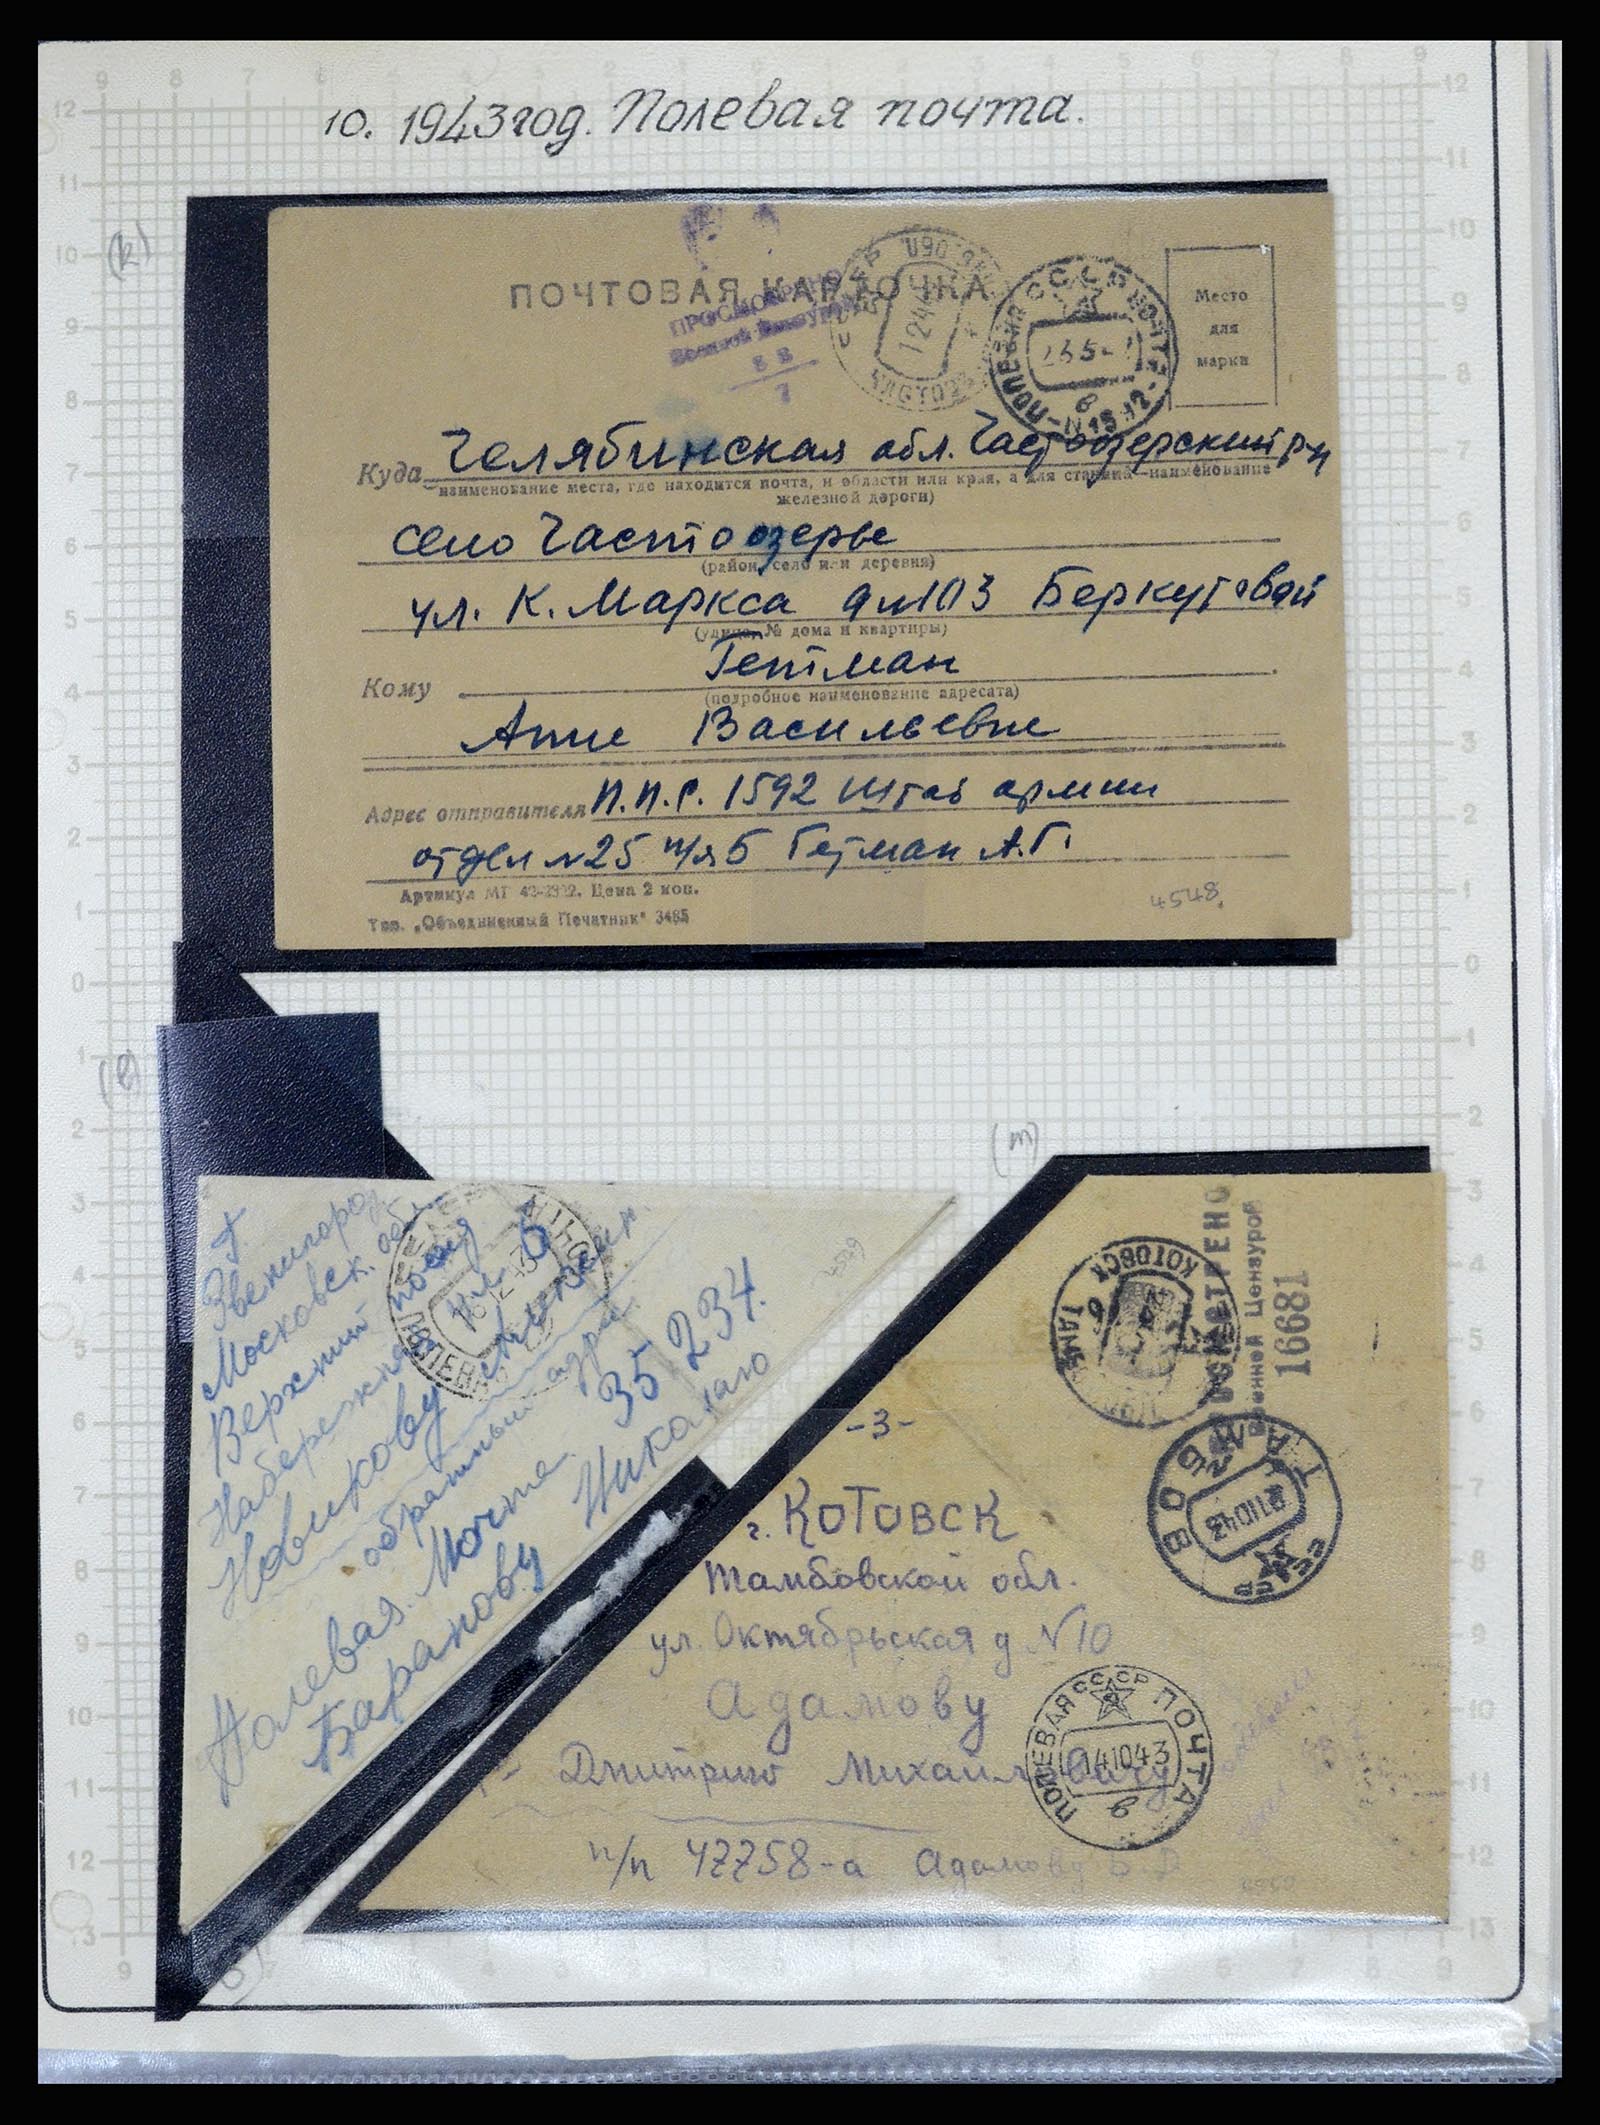 10. 1943 год. Полевая почта.
(k)
ПОЧТОВАЯ КАРТОЧКА
ПРОСМОТРЕНО
Военной Цензурой
7
СССР
ПОЛЕВАЯ ПОЧТА
в
Место
для
марки
Куда Челябинская обл. Частоозерский р-н
наименование места, где находится почта, и области или края, а для станции наименование
железной дороги)
село Частоозерье
(район, село или деревня)
ул. К. Маркса д №103 Беркутовой
(улица, № дома и квартиры)
Гетман
Кому
(подробное наименование адресата)
Анне Васильевне
Адрес отправителя П.П.С. 1592 Штаб армии
отдел №25 п/я 5 Гетман А.Г.
Артикул МГ Цена 2 коп.
Тип. „Объединенный Печатник" 3485
4548.
(l)
г.
Звенигород
Московск. обл.
Верхний посад
Набережная ул 6
Новикову
обратный адре
Полевая Почта 35234.
Баранову Николаю
(m)
КОТОВСК
ТАМБ
ПРОСМОТРЕНО
Военной Цензурой
16681
ТАМБОВ
СССР
-3-
г. Котовск
Тамбовской обл.
ул. Октябрьская д N10
Адамову
Дмитрию Михайловичу
ПОЛЕВАЯ ПОЧТА
СССР
141043
в
п/п 47758-а Адамову В.Д